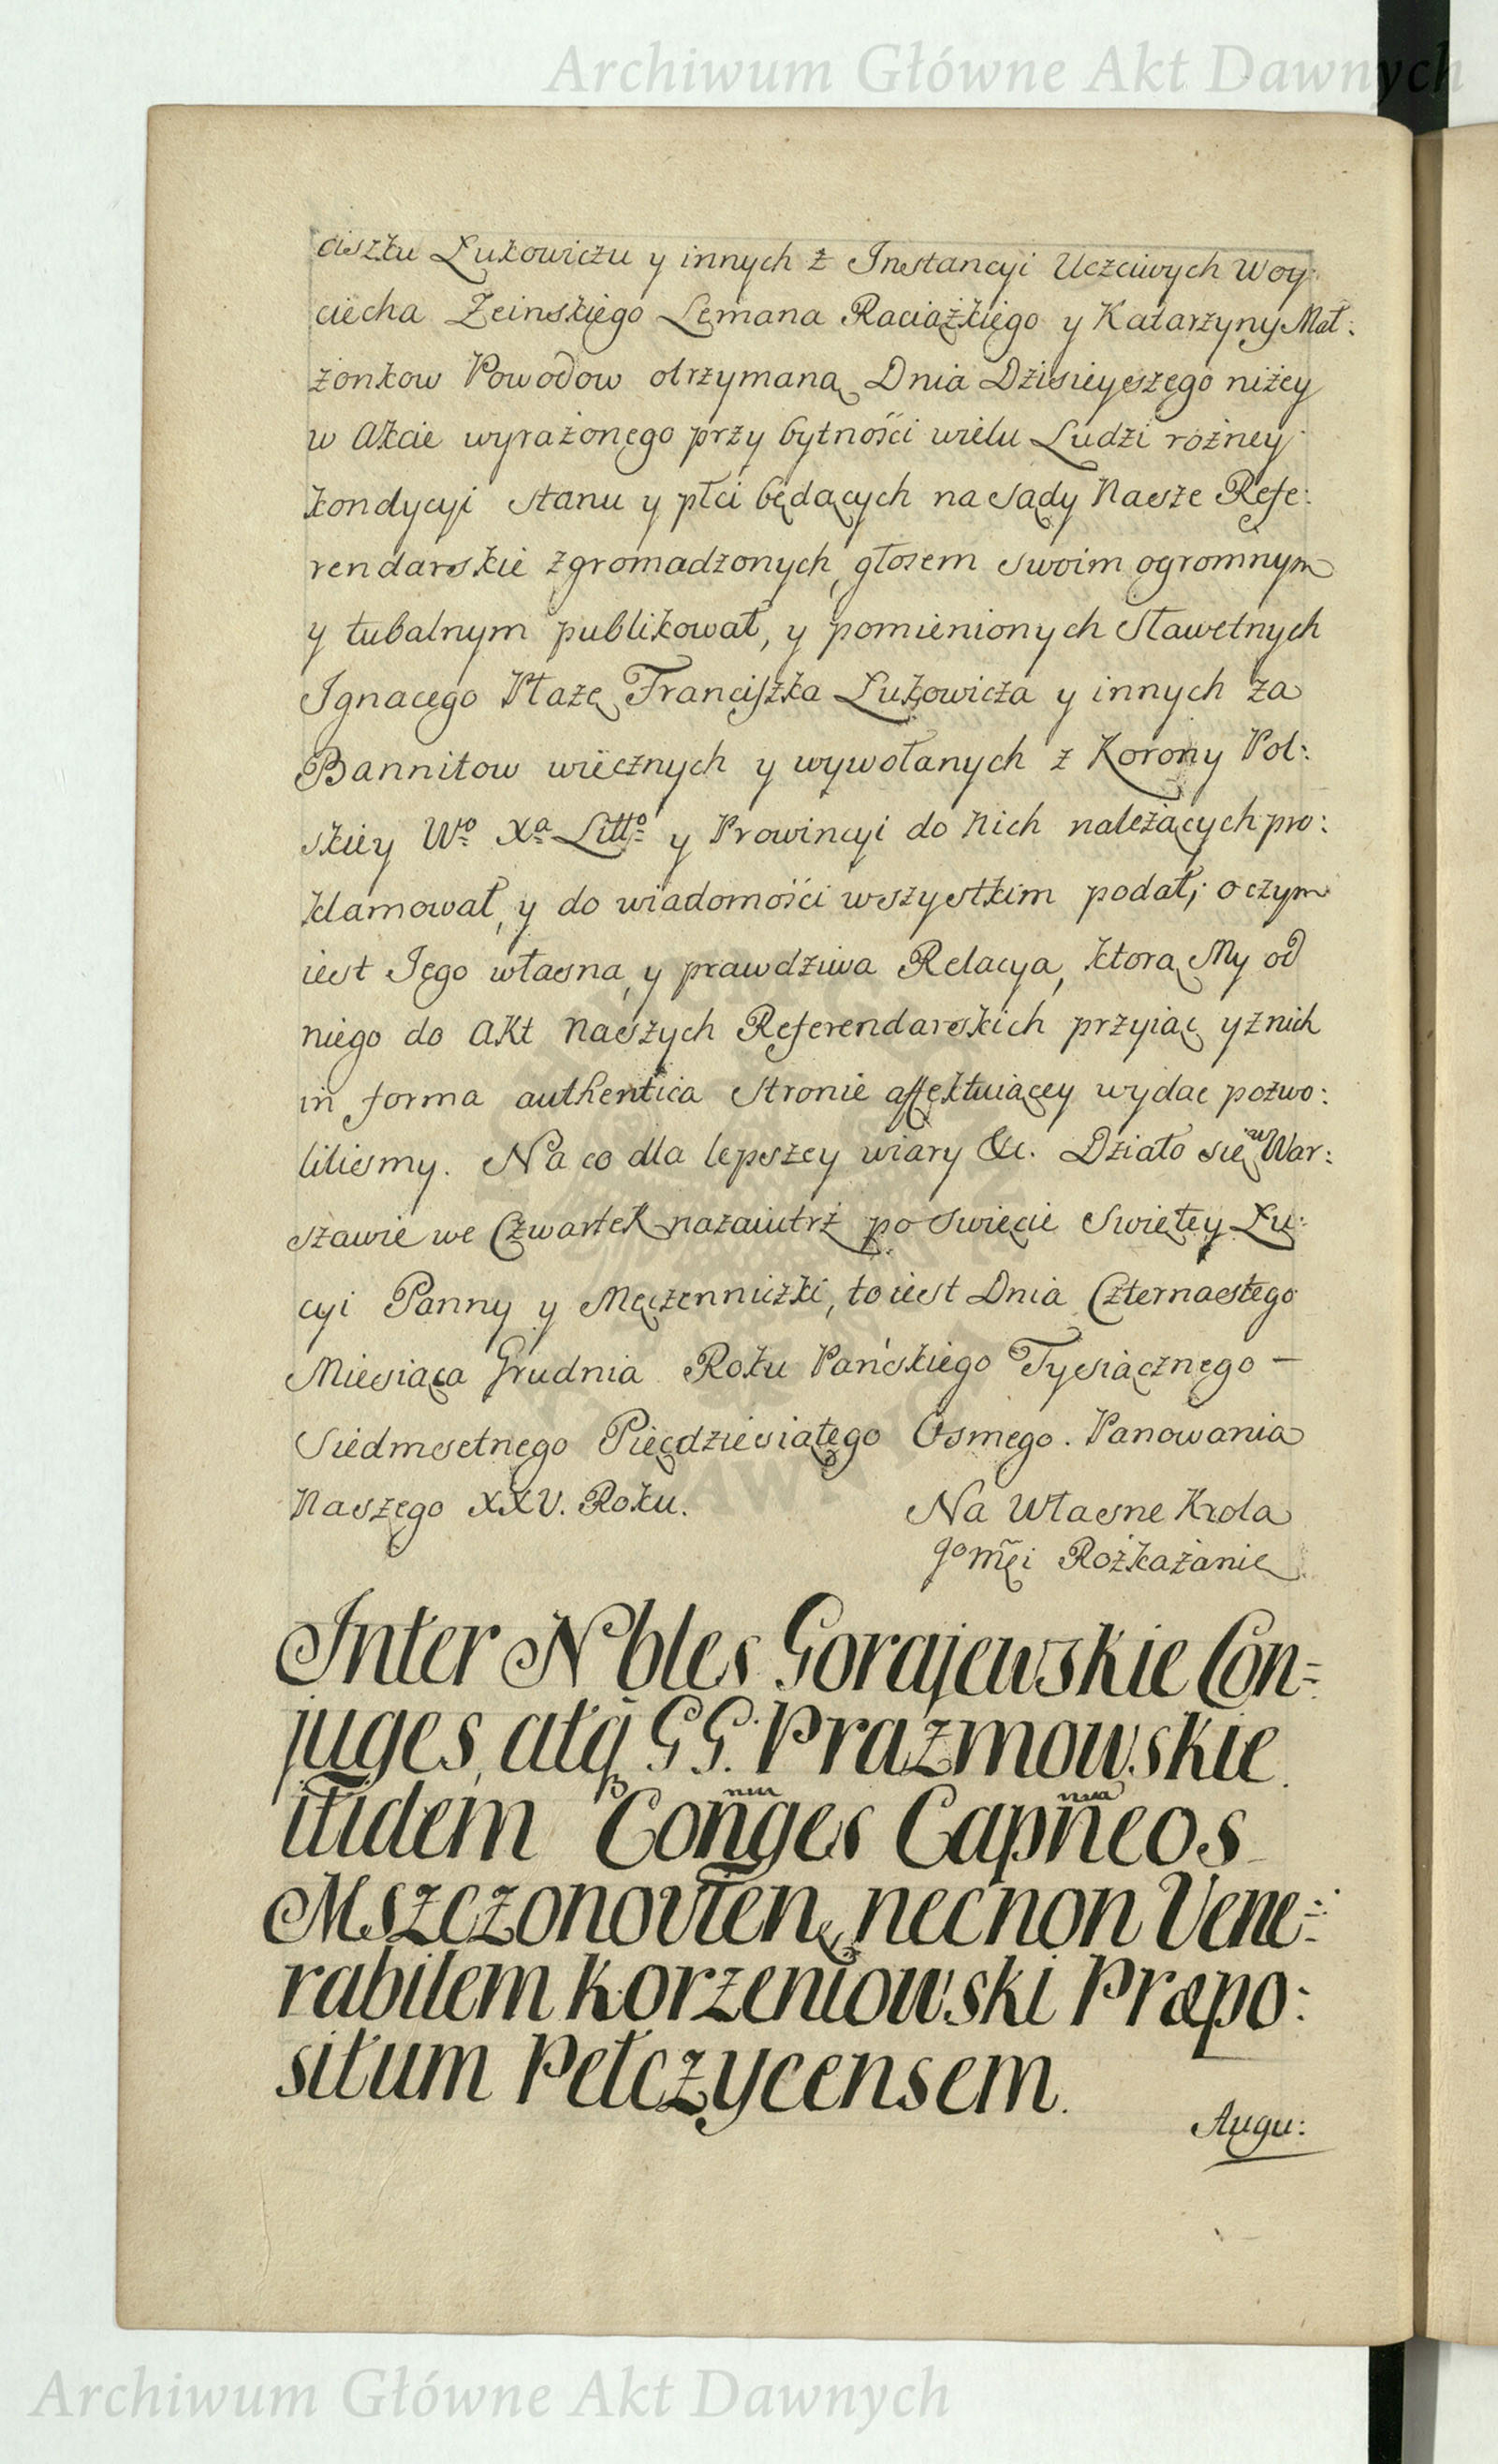 Archiwum Główne Akt Dawnych
ciszku Łukowiczu y innych z Instancyi Uczciwych Woy:
ciecha Zeinskiego Lemana Raciążkiego y Katarzyny Mał:
żonkow Powodow otrzymaną Dnia Dzisieyszego niżey
w Akcie wyrażonego przy bytności wielu Ludzi rożney
kondycyi stanu y płci będących na Sądy Nasze Refe:
rendarskie zgromadzonych, głosem swoim ogromnym
y tubalnym publikował, y pomienionych Sławetnych
Ignacego Ptazę Franciszka Łukowicza y innych za
Bannitow wiecznych y wywołanych z Korony Pol:
skiey Wo Xa Litto y Prowincyi do Nich należących pro:
klamował, y do wiadomości wszystkim podał; o czym
iest Jego własna, y prawdziwa Relacya, ktorą My od
niego do Akt Naszych Referendarskich przyiąc y z nich
in forma authentica Stronie affektuiącey wydac pozwo:
liliśmy. Na co dla lepszey wiary &c. Działo się w War:
szawie we Czwartek nazaiutrz po Swięcie Swiętey Łu:
cyi Panny y Męczenniczki, to iest Dnia Czternastego
Miesiąca Grudnia Roku Pańskiego Tysiącznego —
Siedmsetnego Pięcdziesiątego Osmego. Panowania
Naszego XXV. Roku. Na Własne Krola
Jo mći Rozkazanie
Inter Nbles Gorajewskie Con=
juges, atq GG. Prażmowskie
itidem Conges Capneos
Mszczonovien, necnon Vene=
rabilem Korzeniowski Præpo:
situm Pełczycensem.
Augu:
Archiwum Główne Akt Dawnych